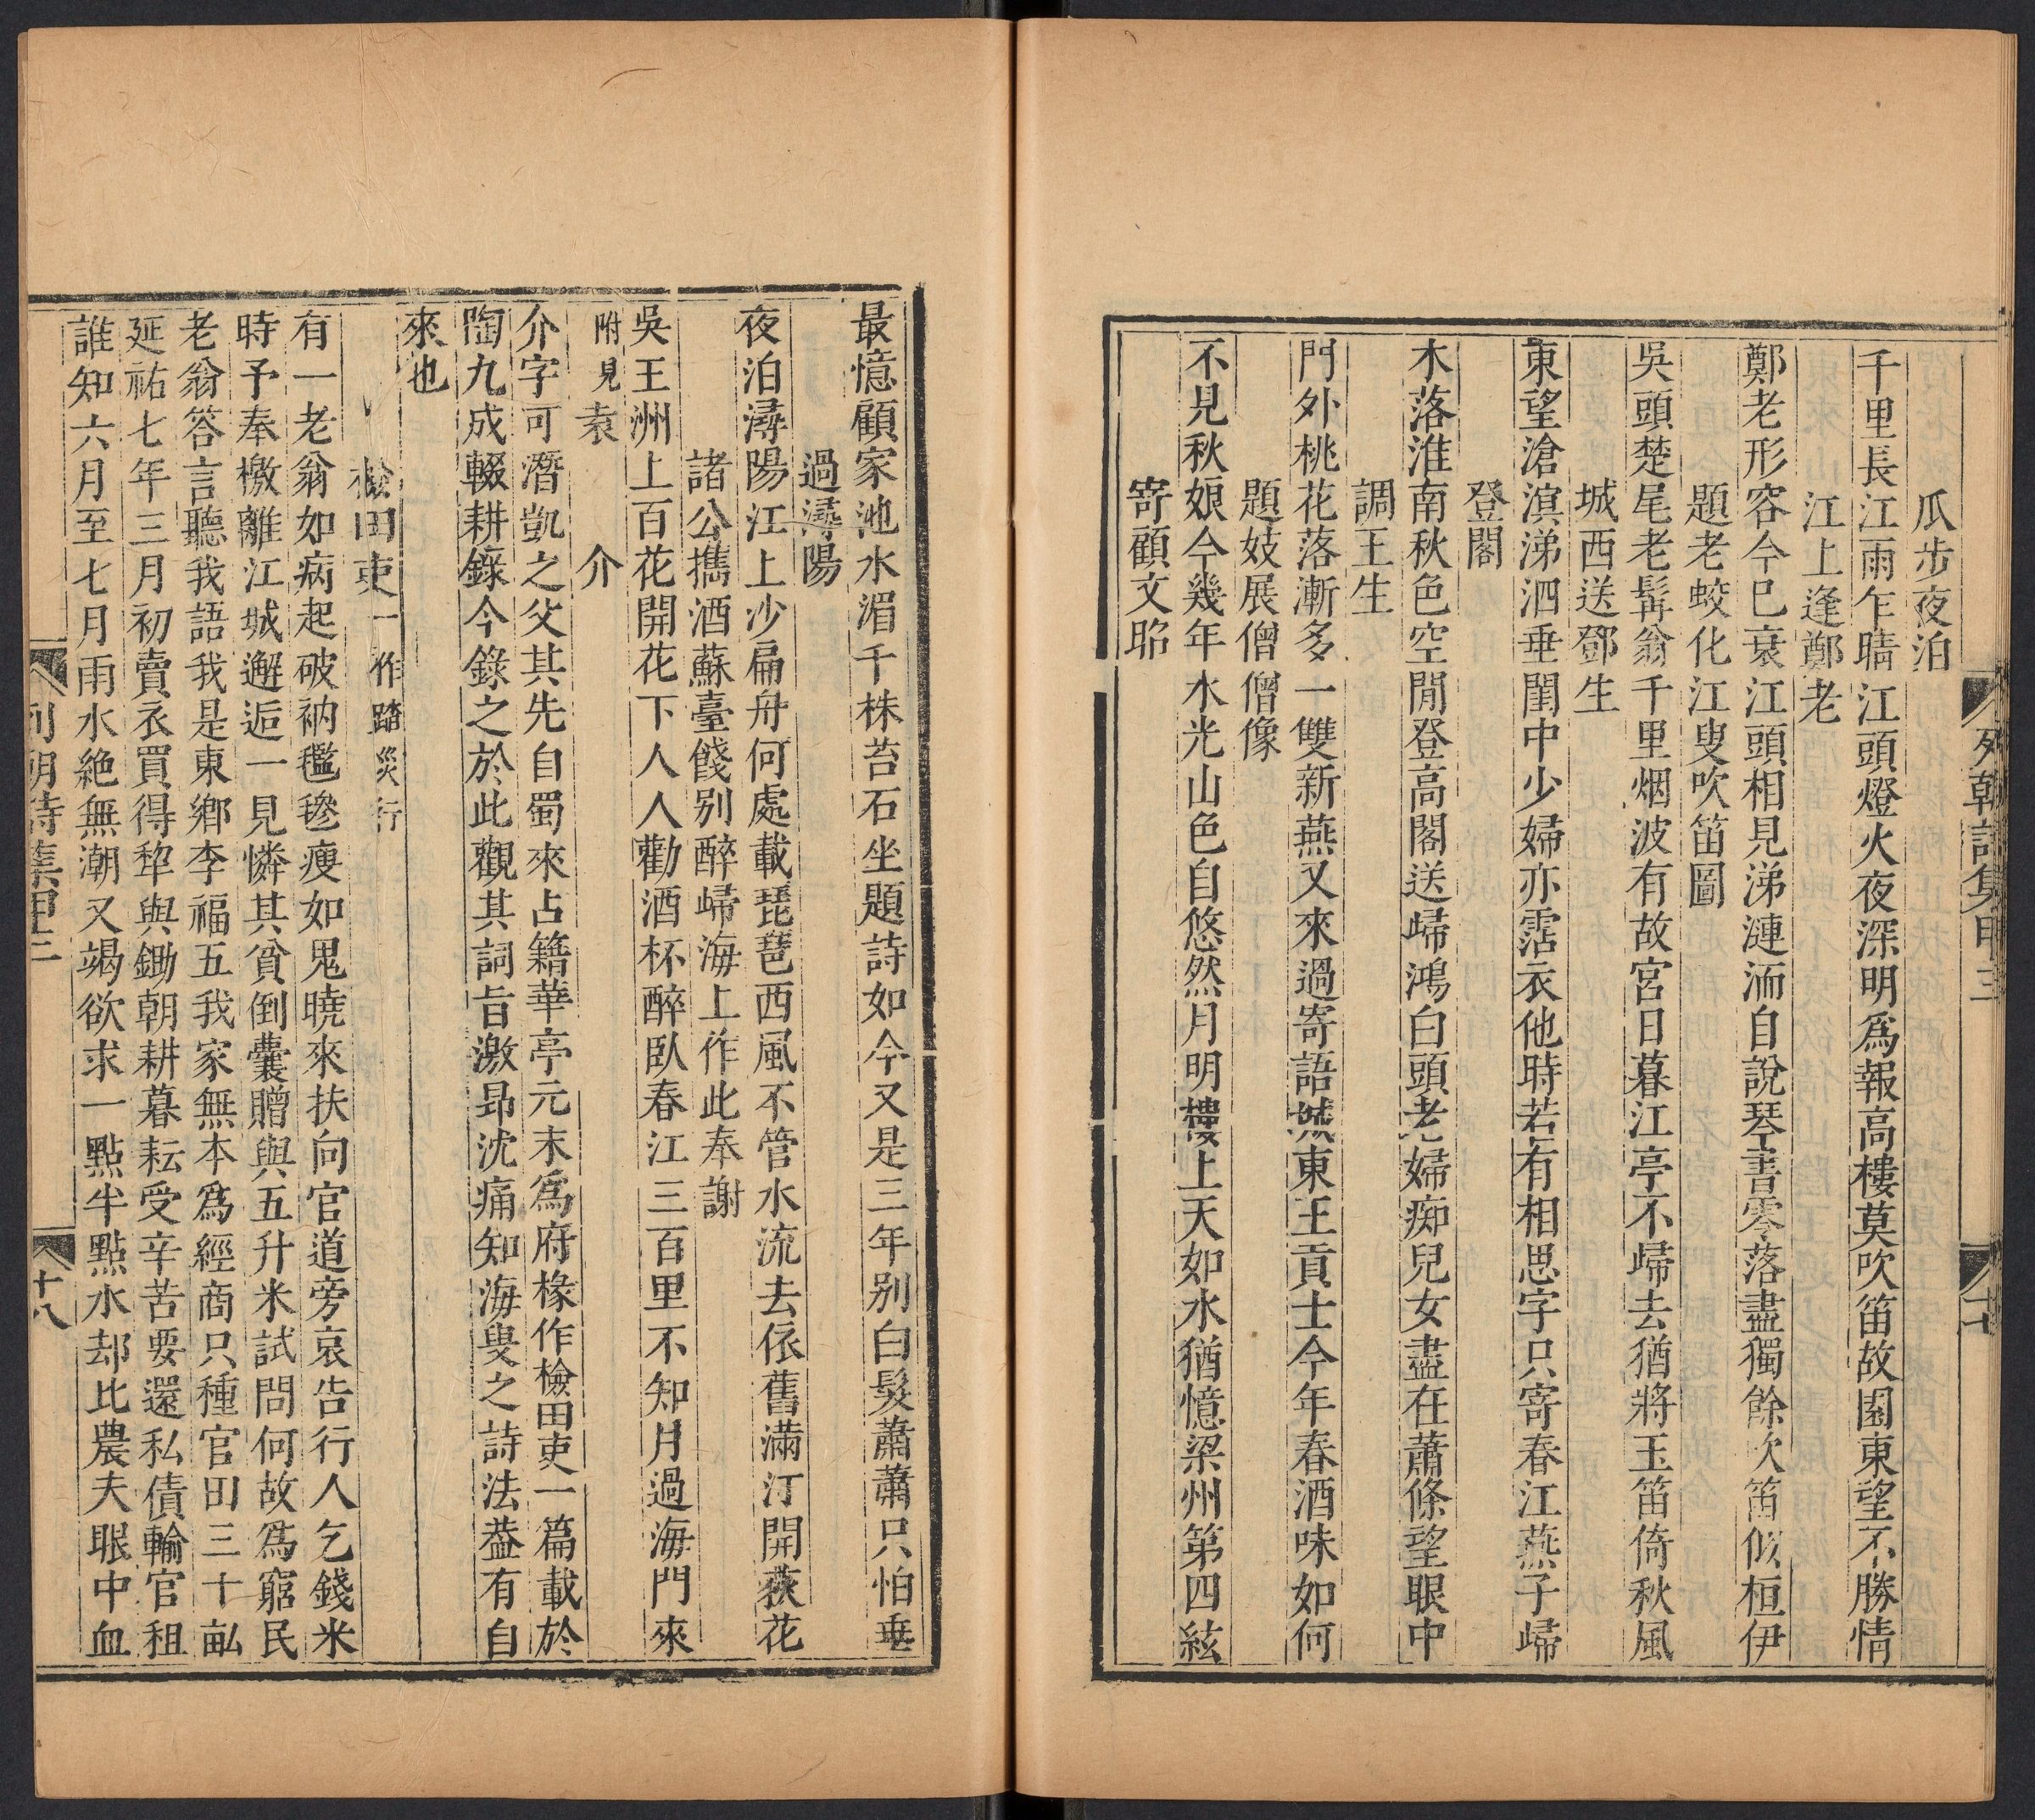 列朝詩集甲三
十七
瓜步夜泊
千里長江雨乍晴江頭燈火夜深明爲報高樓莫吹笛故園東望不勝情
江上逢鄭老
鄭老形容今已衰江頭相見涕漣洏自說琴書零落盡獨餘吹笛似桓伊
題老蛟化江叟吹笛圖
吳頭楚尾老髯翁千里烟波有故宮日暮江亭不歸去猶將玉笛倚秋風
城西送鄧生
東望滄溟涕泗垂閨中少婦亦霑衣他時若有相思字只寄春江燕子歸
登閣
木落淮南秋色空閒登高閣送歸鴻白頭老婦痴兒女盡在蕭條望眼中
調王生
門外桃花落漸多一雙新燕又來過寄語城東王貢士今年春酒味如何
題妓展僧僧像
不見秋娘今幾年水光山色自悠然月明樓上天如水猶憶梁州第四絃
寄顧文昭
最憶顧家池水湄千株苔石坐題詩如今又是三年别白髮蕭蕭只怕垂
過潯陽
夜泊潯陽江上沙扁舟何處載琵琶西風不管水流去依舊滿汀開荻花
諸公攜酒蘇臺餞别醉歸海上作此奉謝
吳王洲上百花開花下人人勸酒杯醉臥春江三百里不知月過海門來
附見袁介
介字可潛凱之父其先自蜀來占籍華亭元末爲府椽作檢田吏一篇載於
陶九成輟耕錄今錄之於此觀其詞旨激昂沈痛知海叟之詩法葢有自
來也
檢田吏一作踏災行
有一老翁如病起破衲𣯶毿瘦如鬼曉來扶向官道旁哀告行人乞錢米
時予奉檄離江城邂逅一見憐其貧倒囊贈與五升米試問何故爲窮民
老翁答言聽我語我是東鄉李福五我家無本爲經商只種官田三十畝
延祐七年三月初賣衣買得犂與鋤朝耕暮耘受辛苦要還私債輸官租
誰知六月至七月雨水絶無潮又竭欲求一點半點水却比農夫眼中血
列朝詩集甲三
十八